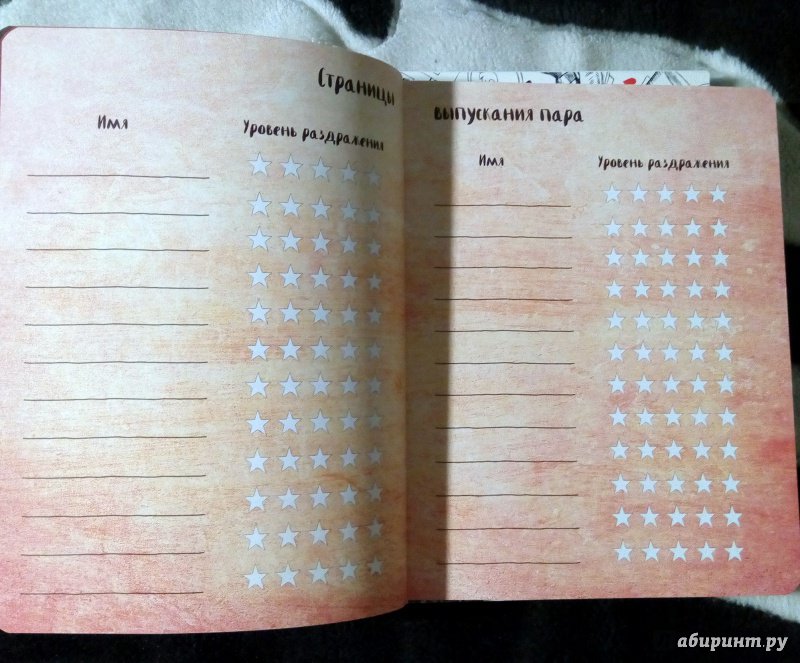 Страницы
Имя
Уровень раздражения
выпускания пара
Имя
Уровень раздражения
абиринт.ру